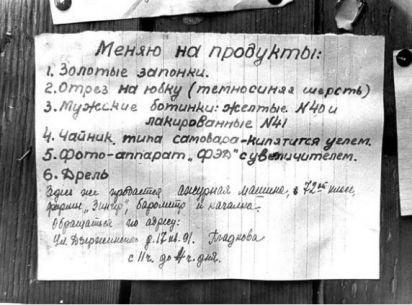 Меняю на продукты:
1. Золотые запонки.
2. Отрез на юбку (темносиняя шерсть)
3. Мужские ботинки: желтые №40 и
лакированные №41
4. Чайник типа самовара-кипятится углем.
5. Фото-аппарат „ФЭД" с увеличителем.
6. Дрель
Здесь же продается ажурная машина, в 72
фирмы „Зингер" барометр и качалка.
Обращаться по адресу:
Ул. Дзержинского д. 17 кв. 91. Гладкова
с 11 ч. до 4 ч. дня.